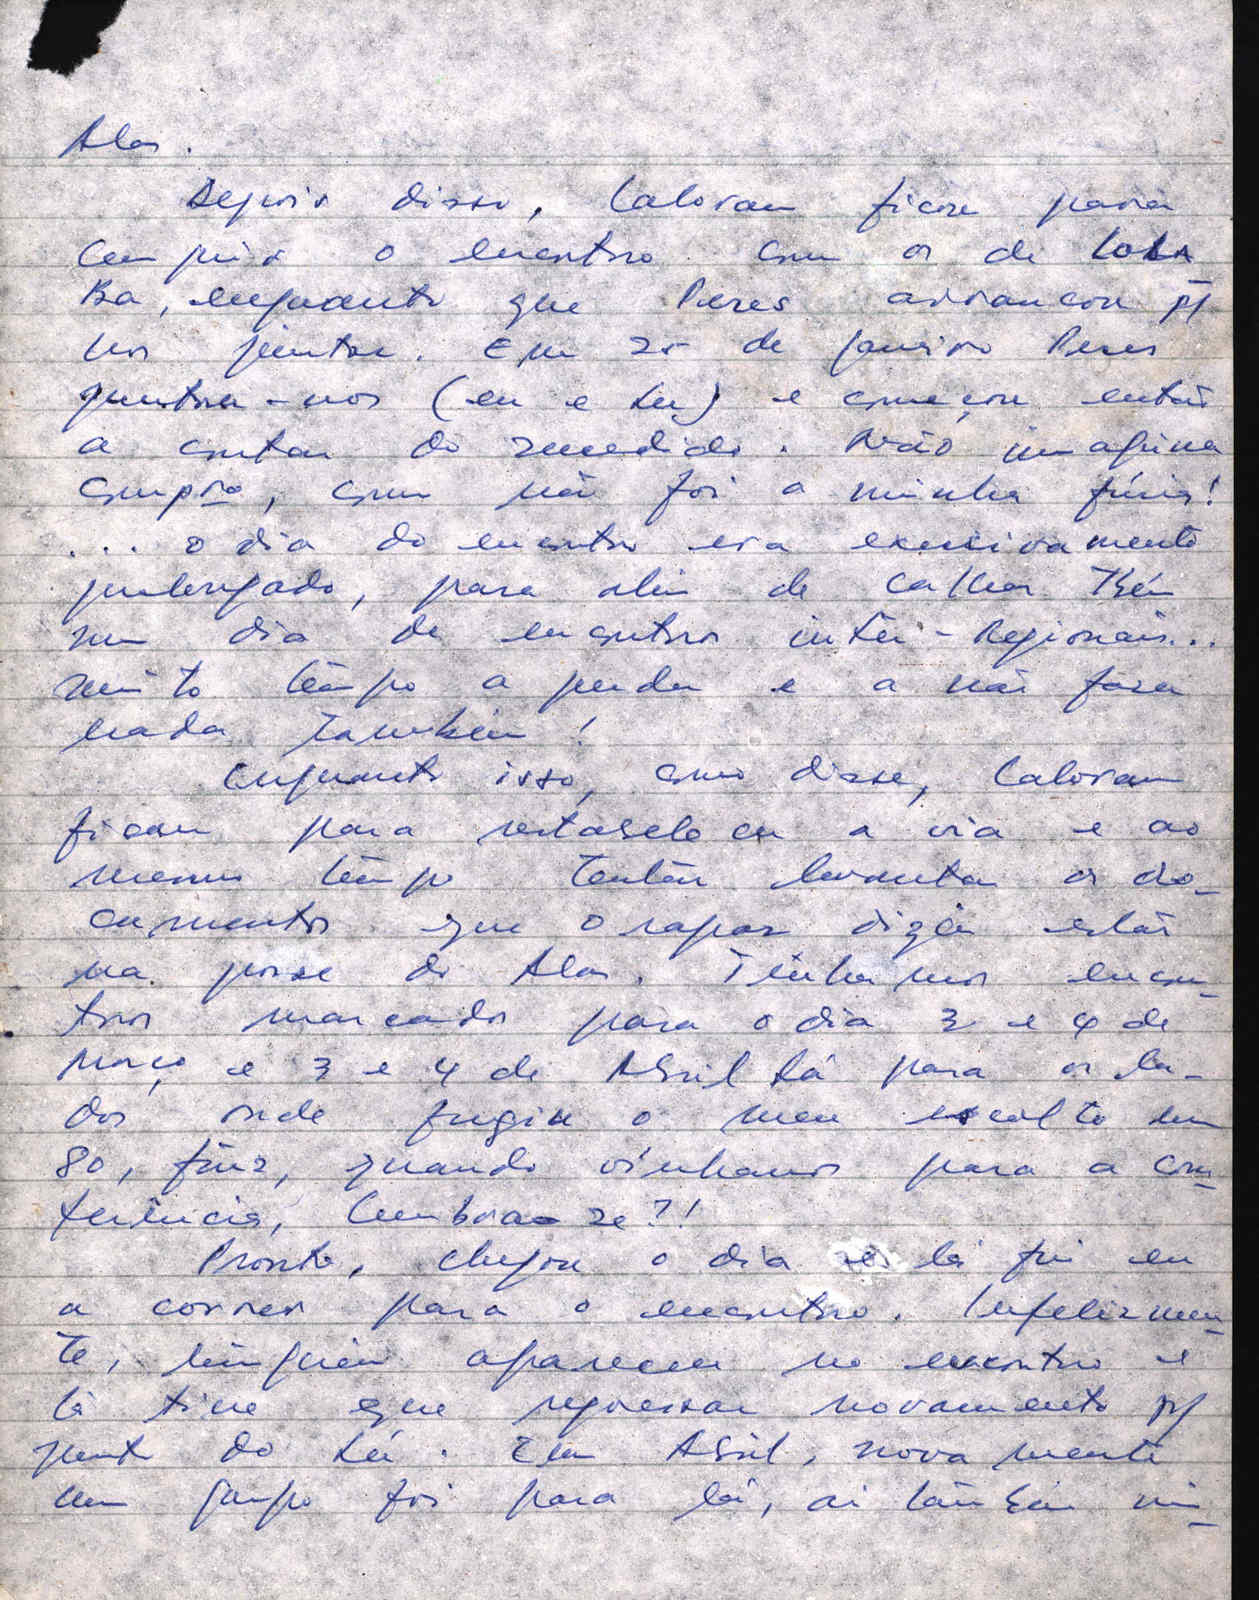 Alas.
Depois disso, Caloram ficou para
cumprir o encontro com os de LOLA
BA, enquanto que Peres arrancou p/
nos juntar. Em 25 de Janeiro Peres
juntou-nos (eu e Lu) e começou então
a contar do sucedido. Não imagina
compro, como não foi a minha fúria!
... o dia do encontro era excessivamente
prolongado, para além de calhar Tbém
num dia de encontros inter-Regionais...
muito têmpo a perder e a não fazer
nada também!
Enquanto isso, como disse, Caloram
ficou para restabelecer a via e ao
mesmo têmpo tentar levantar os do-
cumentos que o rapaz dizia estar
na posse do Alas. Tinhamos encon-
tros marcados para o dia 3 e 4 de
Março e 3 e 4 de Abril lá para os la-
dos onde fugiu o meu escolto em
80, fins, quando vinhamos para a con-
ferência, lembra-se?!
Pronto, chegou o dia e lá fui eu
a correr para o encontro. Infelizmen-
te, ninguém apareceu no encontro e
lá tive que regressar novamente p/
junto do Lu. Em Abril, novamente
um grupo foi para lá, aí também ni-